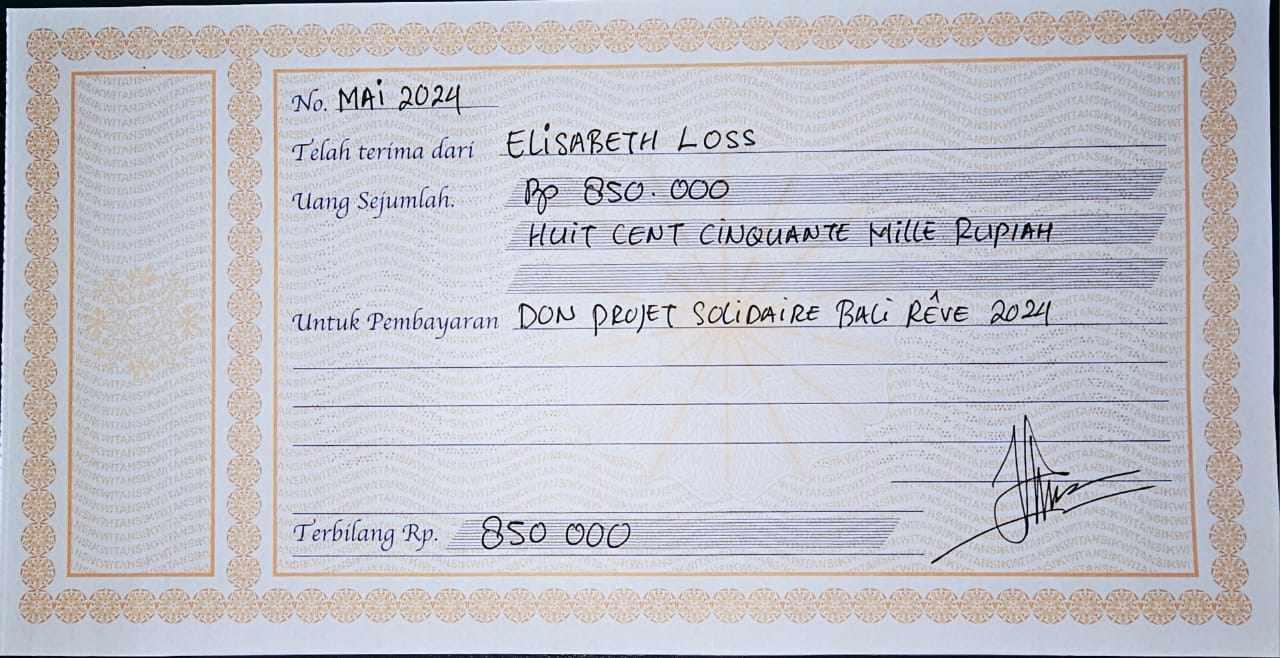 No. MAI 2024
Telah terima dari ELISABETH LOSS
Uang Sejumlah. Rp 850.000
HUIT CENT CINQUANTE MILLE RUPIAH
Untuk Pembayaran DON PROJET SOLIDAIRE BALI RÊVE 2024
Terbilang Rp. 850 000